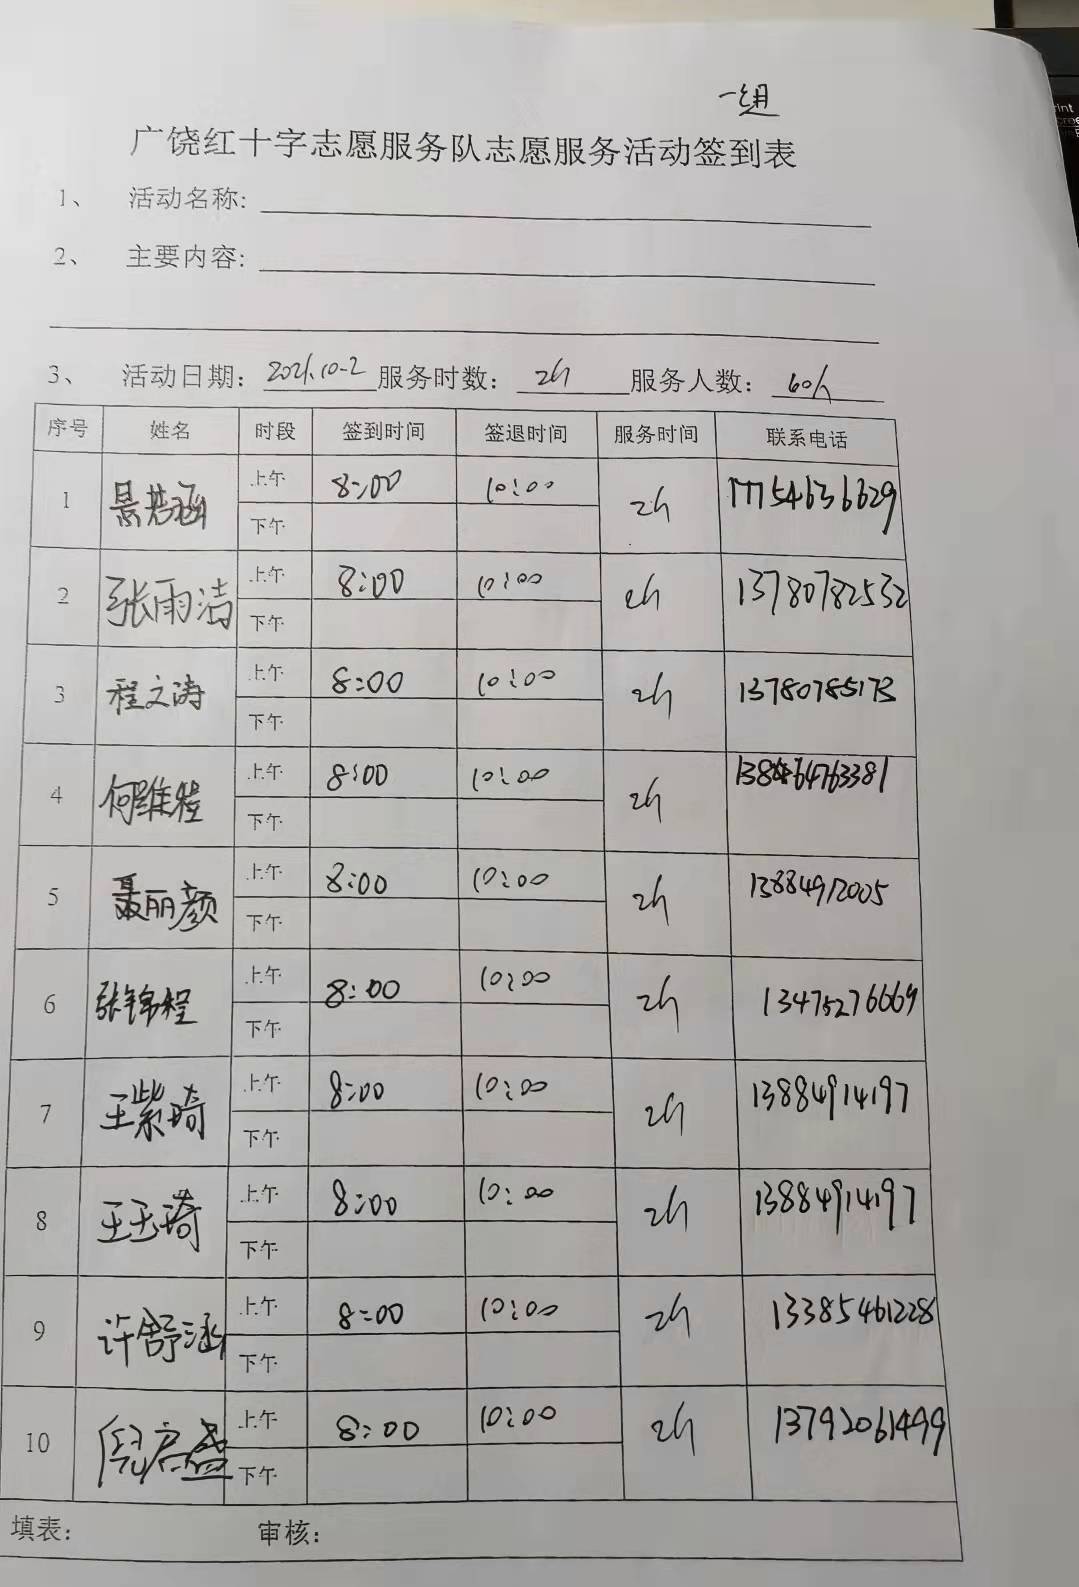 一组
广饶红十字志愿服务队志愿服务活动签到表
1、 活动名称:
2、 主要内容:
3、 活动日期: 2021.10-2 服务时数: 2h 服务人数: 60人
序号 姓名 时段 签到时间 签退时间 服务时间 联系电话
1 景若涵 上午 8:00 10:00 2h 17754636629
下午
2 张雨洁 上午 8:00 10:00 2h 13780782532
下午
3 程文涛 上午 8:00 10:00 2h 13780785173
下午
4 何维程 上午 8:00 10:00 2h
下午
5 聂丽颜 上午 8:00 10:00 2h 13884912005
下午
6 张锦程 上午 8:00 10:00 2h 13475276669
下午
7 王紫琦 上午 8:00 10:00 2h 13884914197
下午
8 王玉琦 上午 8:00 10:00 2h 13884914197
下午
9 许舒涵 上午 8:00 10:00 2h 13385461228
下午
10 倪启盛 上午 8:00 10:00 2h 13792061499
下午
填表: 审核: